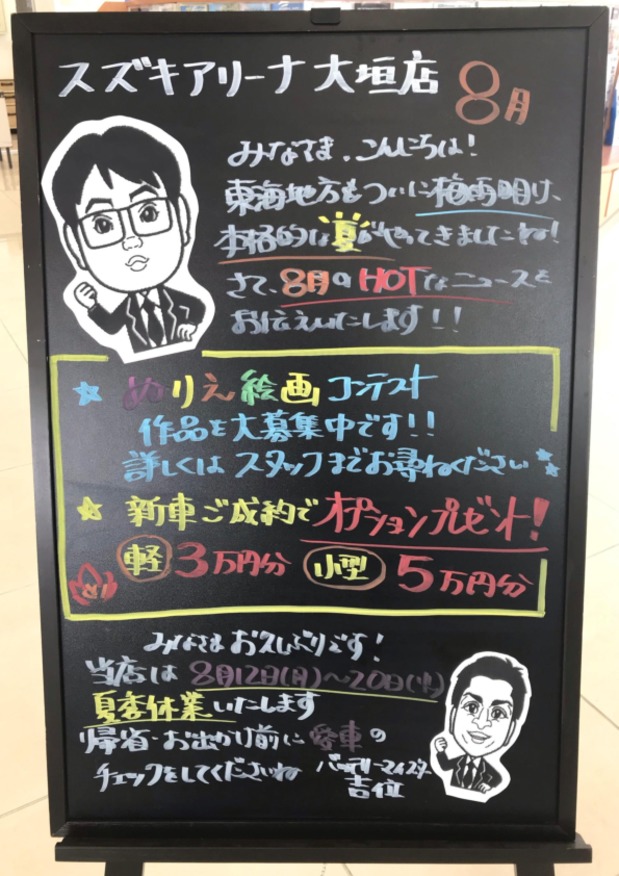 スズキアリーナ大垣店 8月
みなさま、こんにちは!
東海地方もついに梅雨明け、
本格的な夏がやってきましたね!
さて、8月のHOTなニュースを
お伝えいたします!!
ぬりえ絵画コンテスト
作品を大募集中です!!
詳しくはスタッフまでお尋ねください
新車ご成約でオプションプレゼント!
軽 3万円分 小型 5万円分
みなさまお久しぶりです!
当店は8月12日(月)~20日(火)
夏季休業いたします
帰省・お出かけ前に愛車の
チェックをしてくださいね
バッテリーマイスター
吉位